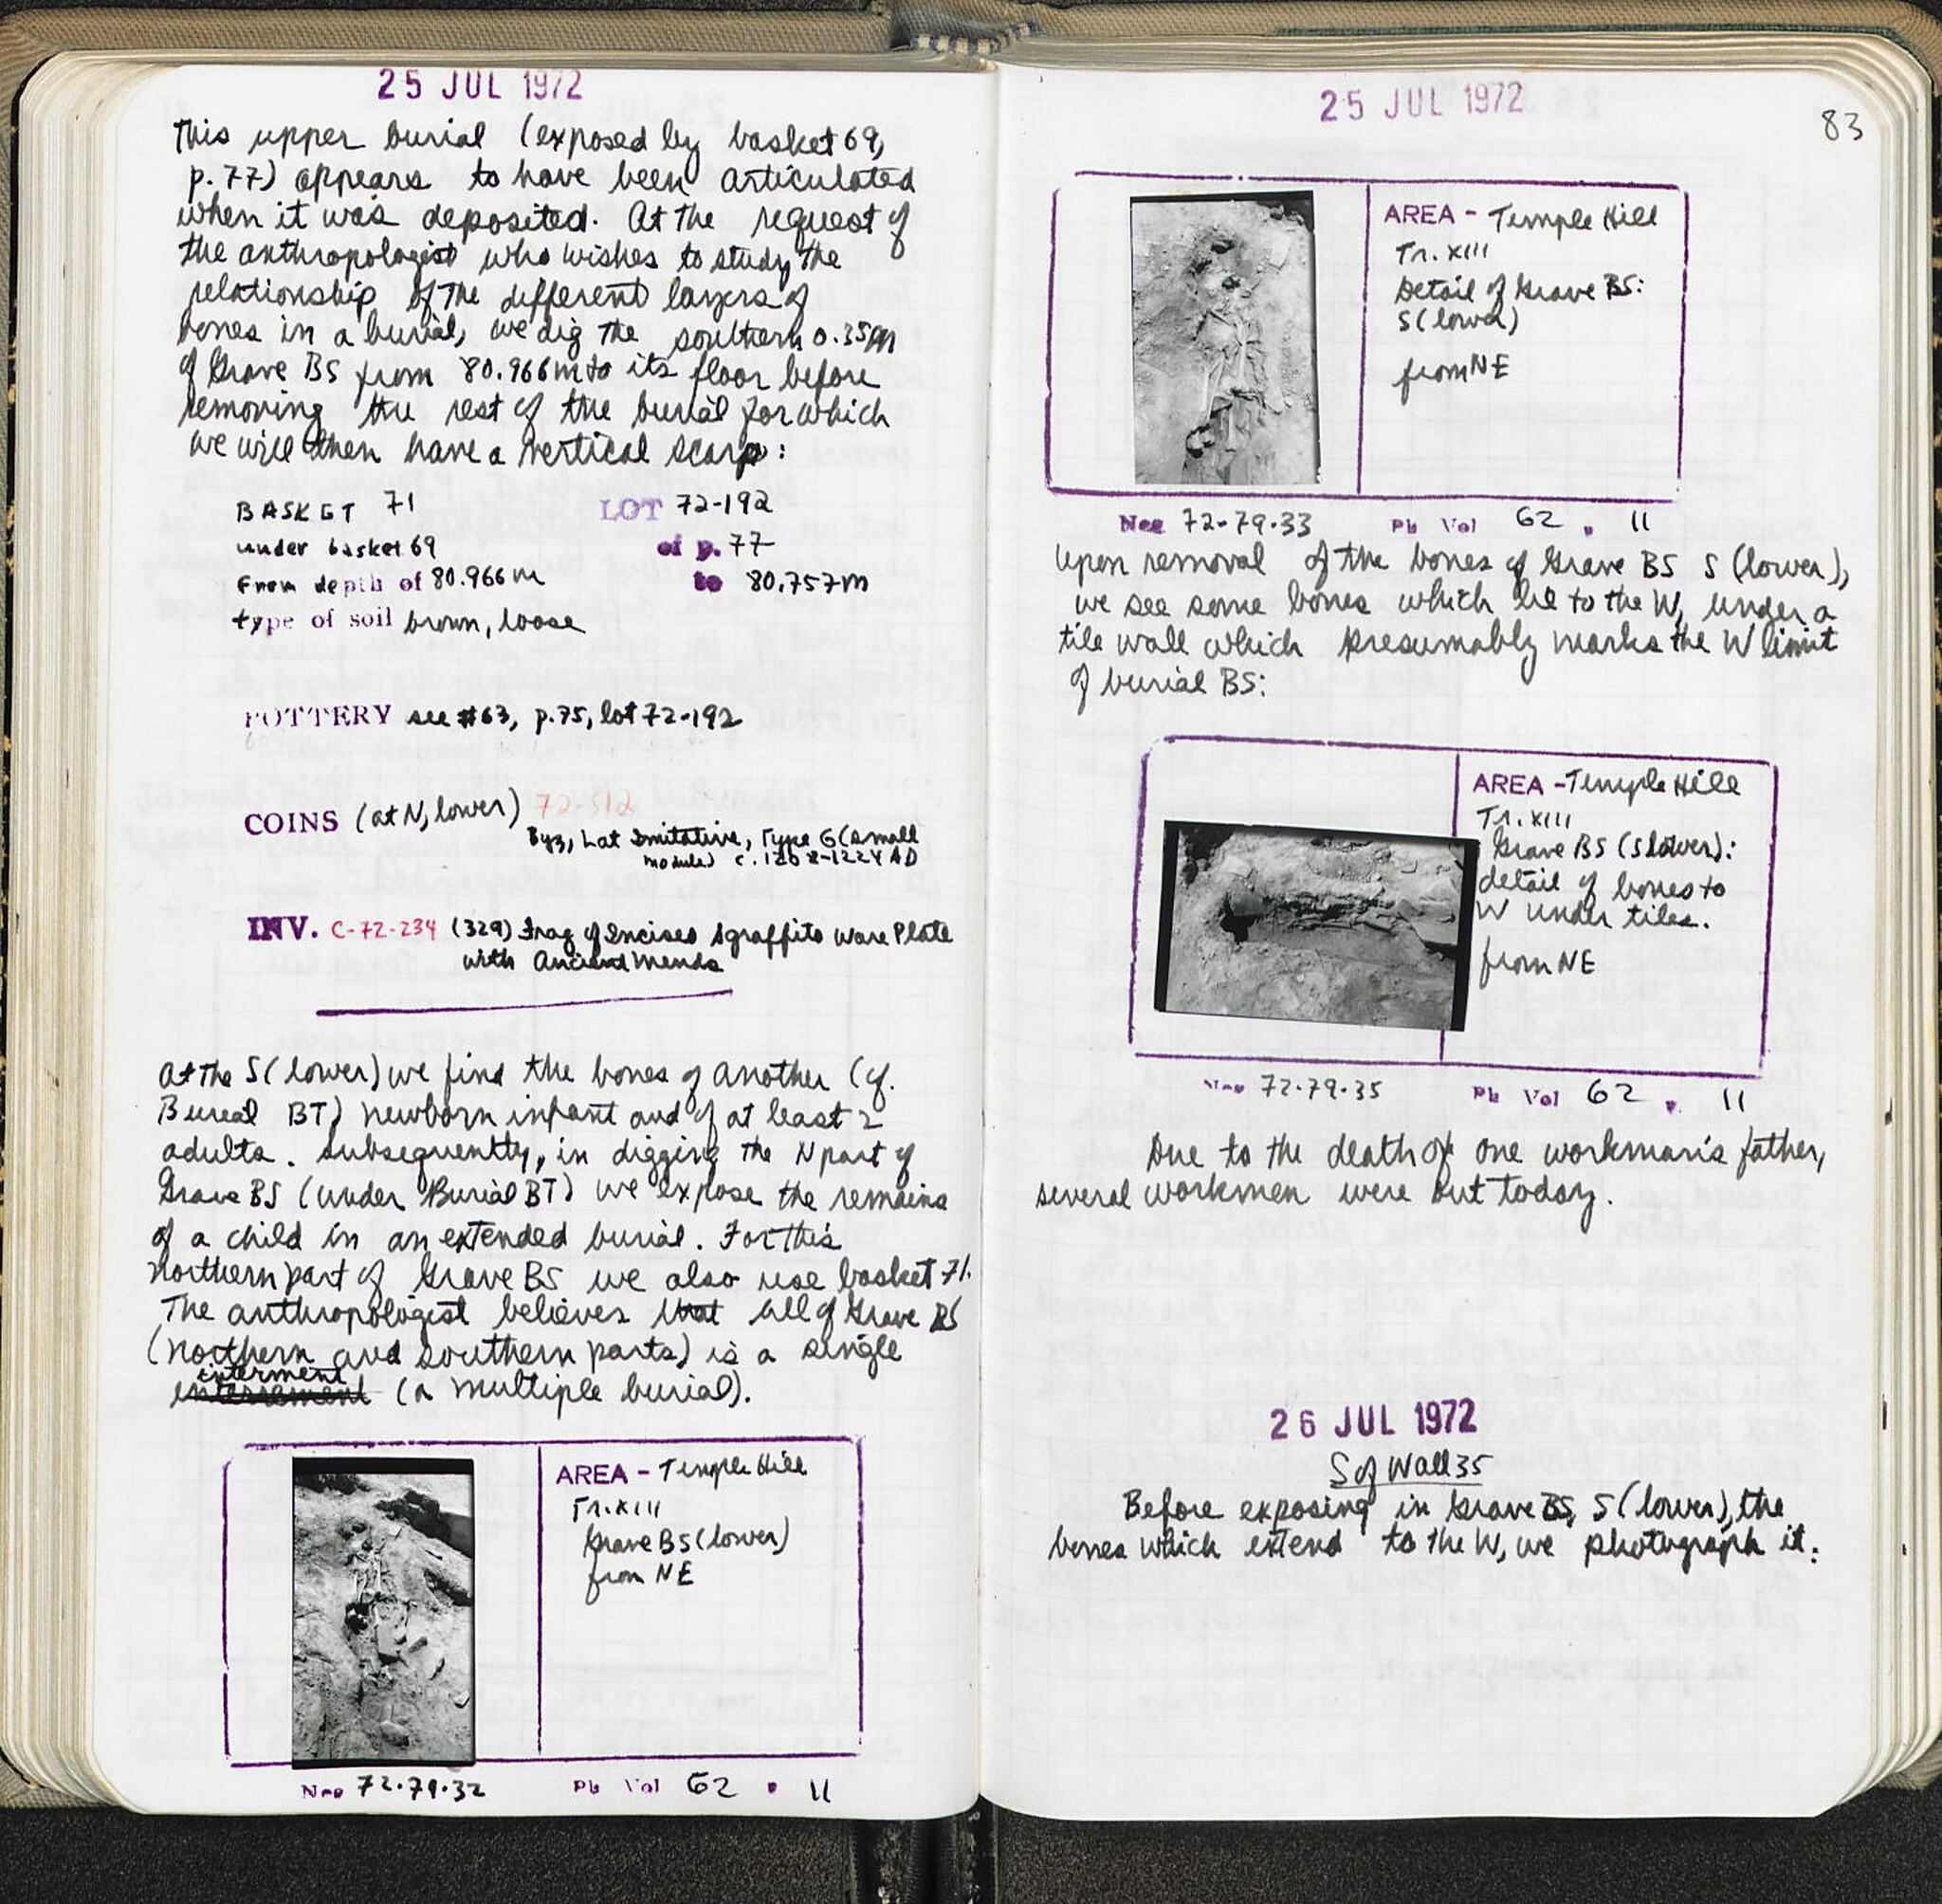 25 JUL 1972
This upper burial (exposed by basket 69,
p. 77) appears to have been articulated
when it was deposited. At the request of
the anthropologist who wishes to study the
relationship of the different layers of
bones in a burial, we dig the southern 0.35m
of Grave BS from 80.966m to its floor before
removing the rest of the burial for which
we will then have a vertical scarp:
BASKET 71 LOT 72-192
under basket 69 of p. 77
From depth of 80.966m to 80.757m
type of soil brown, loose
POTTERY see #63, p. 75, lot 72-192
COINS (at N, lower) 72-512
Byz, Lat Imitative, Type G (small
module) c. 1208-1224 AD
INV. C-72-234 (329) Frag of Incised Sgraffito Ware Plate
with Ancient Mends
At the S (lower) we find the bones of another (cf.
Burial BT) newborn infant and of at least 2
adults. Subsequently, in digging the N part of
Grave BS (under Burial BT) we expose the remains
of a child in an extended burial. For this
northern part of Grave BS we also use basket 71.
The anthropologist believes that all of Grave BS
(northern and southern parts) is a single
interment
(a multiple burial).
AREA - Temple Hill
Tr. XIII
Grave BS (lower)
from NE
Neg 72-79-32 Ph Vol 62 p 11
25 JUL 1972
83
AREA - Temple Hill
Tr. XIII
Detail of Grave BS:
S (lower)
from NE
Neg 72-79-33 Ph Vol 62 p 11
Upon removal of the bones of Grave BS S (lower),
we see some bones which lie to the W, under a
tile wall which presumably marks the W limit
of burial BS:
AREA - Temple Hill
Tr. XIII
Grave BS (S lower):
detail of bones to
W under tiles.
from NE
Neg 72-79-35 Ph Vol 62 p. 11
Due to the death of one workman's father,
several workmen were out today.
26 JUL 1972
S of Wall 35
Before exposing in Grave BS, S (lower), the
bones which extend to the W, we photograph it: